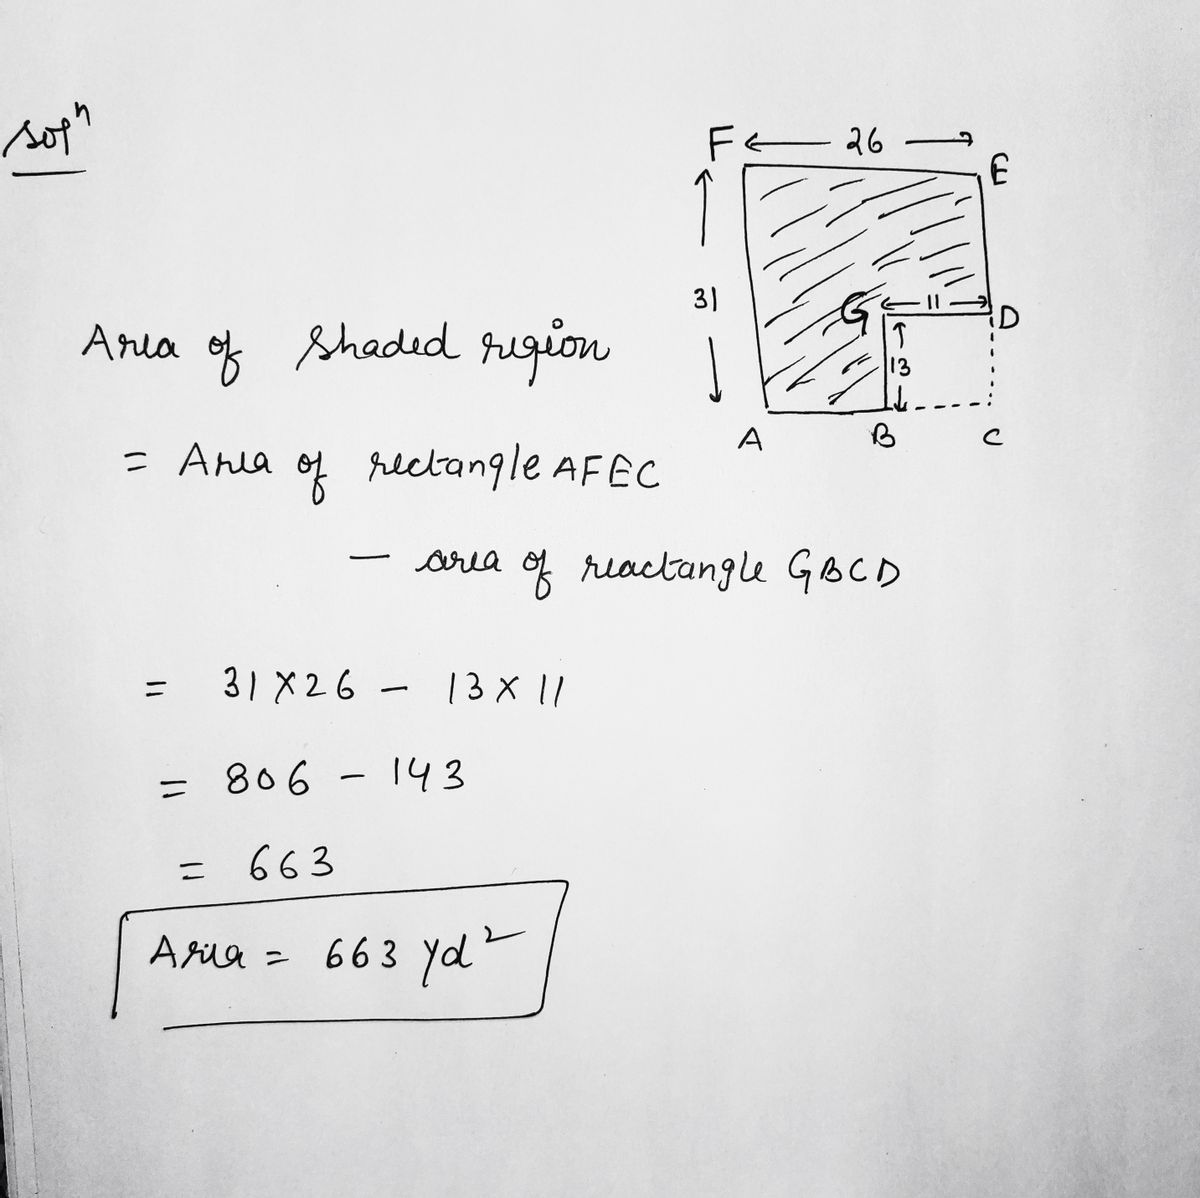 solⁿ
F ← 26 → E
31
G ← 11 → D
13
A B C
Area of shaded region
= Area of rectangle AFEC
— area of reactangle GBCD
= 31 X 26 - 13 X 11
= 806 - 143
= 663
Area = 663 yd²